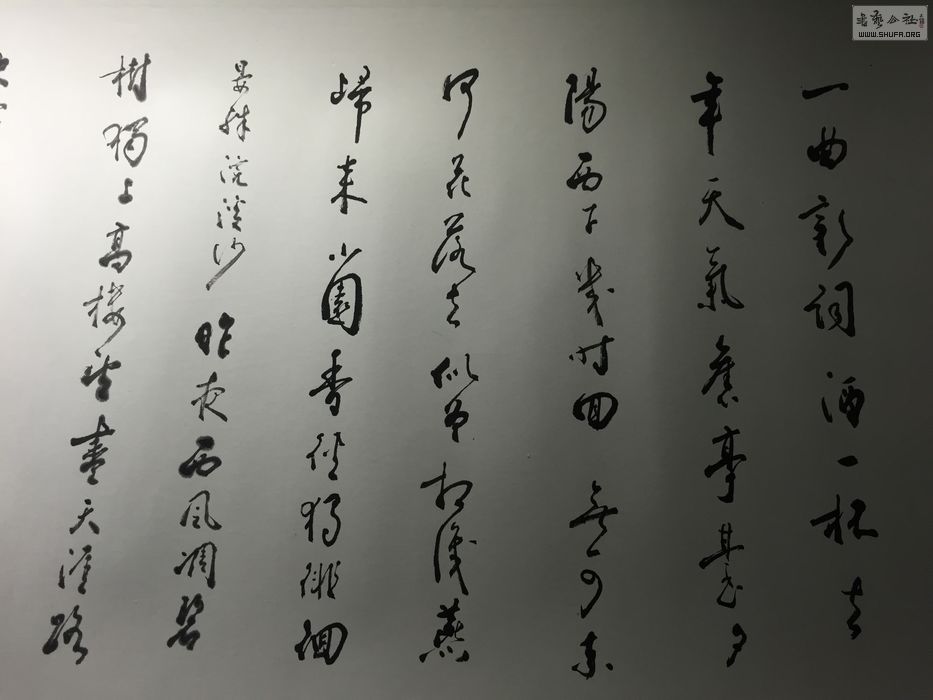 一曲新詞酒一杯去
年天氣舊亭臺夕
陽西下幾時回無可奈
何花落去似曾相識燕
歸來小園香徑獨徘徊
晏殊浣溪沙 昨夜西風凋碧
樹獨上高樓望盡天涯路
書藝公社
WWW.SHUFA.ORG